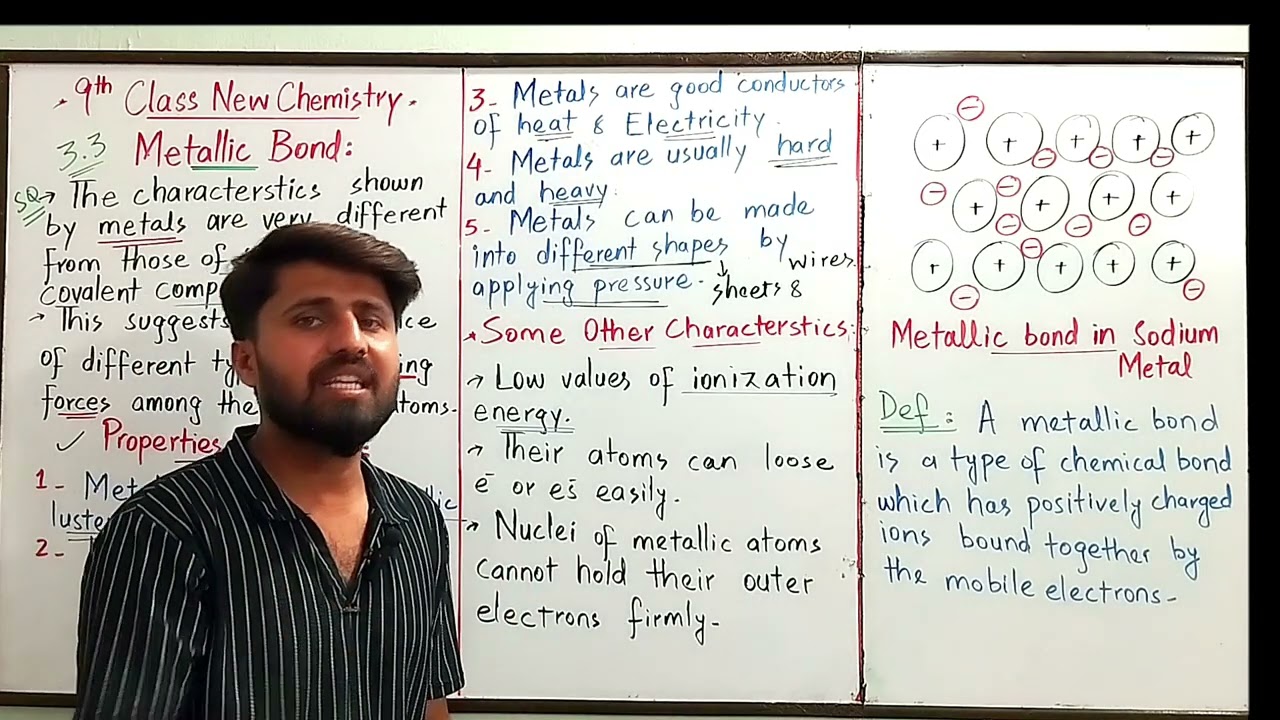 9th Class New Chemistry.
3.3 Metallic Bond:
SQ→ The characterstics shown
by metals are very different
from those of
covalent
→ This suggests
of different
forces among the
✓ Properties
1-
luste
2-
3- Metals are good conductors
of heat & Electricity.
4- Metals are usually hard
and heavy.
5- Metals can be made
into different shapes by
applying pressure. → sheets & wires
* Some Other Characterstics:
→ Low values of ionization
energy.
→ Their atoms can loose
ē or ēs easily.
→ Nuclei of metallic atoms
cannot hold their outer
electrons firmly-
+ + + + +
+ + + +
+ + + + +
Metallic bond in Sodium
Metal
Def: A metallic bond
is a type of chemical bond
which has positively charged
ions bound together by
the mobile electrons-